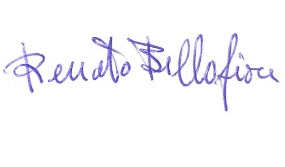 Renato Bellofiore